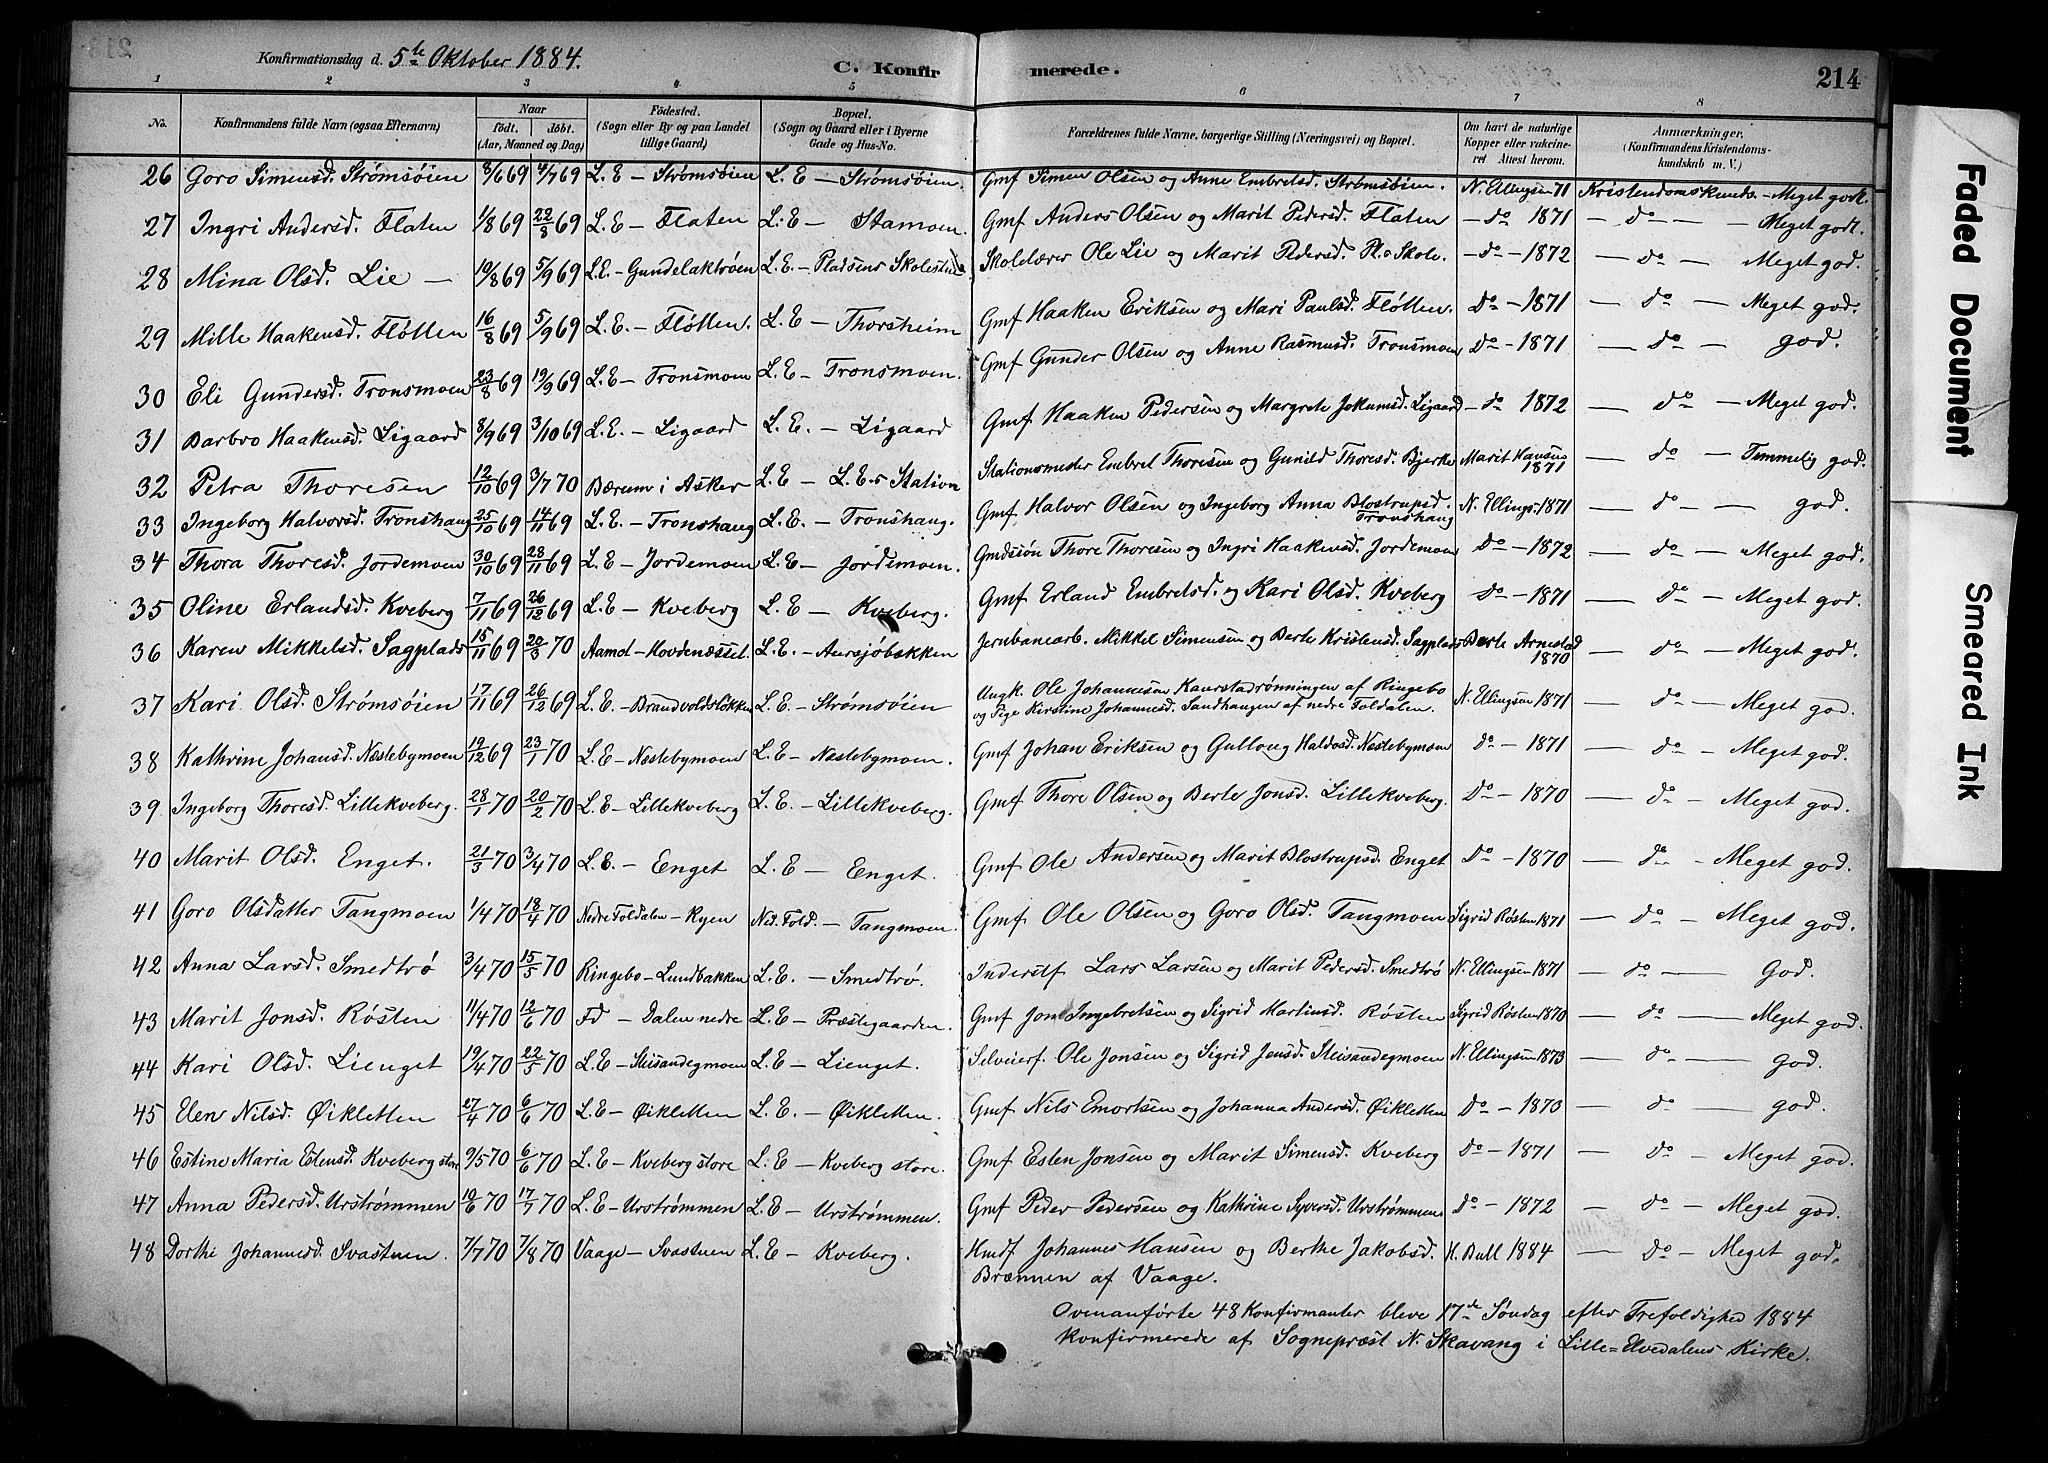 Konfirmationsdag d. 5te Oktober 1884. C. Konfirmerede. 214
1 2 3 4 5 6 7 8
No. Konfirmandens fulde Navn (ogsaa Efternavn) Naar födt. döbt. (Aar, Maaned og Dag) Födested. (Sogn eller By og paa Landet tillige Gaard) Bopæl. (Sogn og Gaard eller i Byerne Gade og Hus-No. Forældrenes fulde Navne, borgerlige Stilling (Næringsvei) og Bopæl. Om havt de naturlige Kopper eller vakcineret Attest herom. Anmærkninger. (Konfirmandens Kristendomskundskab m. V.)
26 Goro Simensd. Strømsøien 8/6 69 4/7 69 L. E – Strømsøien L. E – Strømsøien. Gmf Simen Olsen og Anne Embretsd. Strømsøien. N. Ellingsen 71 Kristendomskunds. – Meget godt.
27 Ingri Andersd. Flaten 1/8 69 22/8 69 L. E – Flaten L. E – Stamoen. Gmf Anders Olsen og Marit Pedersd. Flaten – do 1871 – do – Meget godt.
28 Mina Olsd. Lie – 10/8 69 5/9 69 L. E. – Gundelaktrøen L. E. – Pladsens Skolestue Skolelærer Ole Lie og Marit Pedersd. Pl. Skole. – do – 1872 – do – Meget god.
29 Mille Haakensd. Fløtten 16/8 69 5/9 69 L. E. – Fløtten. L. E – Thorsheim Gmf Haaken Eriksen og Mari Paulsd. Fløtten. do – 1871 – do – Meget god.
30 Eli Gundersd. Tronsmoen 23/8 69 19/9 69 L. E – Tronsmoen L. E – Tronsmoen. Gmf Gunder Olsen og Anne Rasmusd. Tronsmoen do – 1871 – do – god.
31 Barbro Haakensd. Ligaard 8/9 69 3/10 69 L. E. – Ligaard L. E. – Ligaard Gmf Haaken Pedersen og Margrete Jokumsd. Ligaard – do 1872 – do – Meget god.
32 Petra Thoresen 12/10 69 3/7 70 Bærum i Asker L. E – L. E.s Station Stationsmester Embret Thoresen og Gunild Thoresd. Bjerke Marit Hansen 1871 – do – Temmelig god.
33 Ingeborg Halvorsd. Tronshaug 25/10 69 14/11 69 L. E. – Tronshaug L. E. – Tronshaug. Gmf Halvor Olsen og Ingeborg Anna Blostrupsd. Tronshaug N. Ellings. 1871 – do – god.
34 Thora Thoresd. Jordemoen 30/10 69 28/11 69 L. E – Jordemoen L. E – Jordemoen. Gmdssøn Thore Thoresen og Ingri Haakensd. Jordemoen do – 1872 – do – Meget god.
35 Oline Erlandsd. Kveberg 7/11 69 26/12 69 L. E – Kveberg L. E – Kveberg. Gmf Erland Embretsd. og Kari Olsd. Kveberg do – 1871 – do – Meget god.
36 Karen Mikkelsd. Sagplads 15/11 69 20/3 70 Aamot – Hovdenæsset L. E. – Aursjøbækken Jernbanearb. Mikkel Simensen og Berte Kristensd. Sagplads Berte Arnestad 1870 – do – Meget god.
37 Kari Olsd. Strømsøien 17/11 69 26/12 69 L. E. – Brandvoldsløkken L. E – Strømsøien Ungk. Ole Johannesen Kaurstadrønningen af Ringebo og Pige Kirstine Johannesd. Sandhaugen af nedre Foldalen. N. Ellingsen 1871 – do – Meget god.
38 Kathrine Johansd. Næstebymoen 19/12 69 23/1 70 L. E – Næstebymoen L. E – Næstebymoen. Gmf Johan Eriksen og Gulloug Haldosd. Næstebymoen do – 1871 – do – Meget god.
39 Ingeborg Thoresd. Lillekveberg. 28/1 70 20/2 70 L. E – Lillekveberg L. E. – Lillekveberg. Gmf Thore Olsen og Berte Jonsd. Lillekveberg. do – 1870 – do – Meget god.
40 Marit Olsd. Enget. 21/3 70 3/4 70 L. E. – Enget L. E – Enget. Gmf Ole Andersen og Marit Blostrupsd. Enget do – 1870 – do – Meget god.
41 Goro Olsdatter Tangmoen 1/4 70 18/4 70 Nedre Foldalen – Ryen Ned. Fold. – Tangmoen. Gmf Ole Olsen og Goro Olsd. Tangmoen Sigrid Røsten 1871 – do – Meget god.
42 Anna Larsd. Smedtrø 3/4 70 15/5 70 Ringebo – Lundbakken L. E. – Smedtrø. Inderstf. Lars Larsen og Marit Pedersd. Smedtrø N. Ellingsen 1871 – do – God.
43 Marit Jonsd. Røsten 11/4 70 12/6 70 Fd – Dalen nedre L. E – Præstegaarden. Gmf Jon Ingebretsen og Sigrid Martinsd. Røsten Sigrid Røsten 1870 – do – Meget god.
44 Kari Olsd. Lienget 19/4 70 22/5 70 L. E – Steisandegmoen L. E – Lienget. Selveierf. Ole Jonsen og Sigrid Jensd. Steisandegmoen N. Ellingsen 1873 – do – god.
45 Elen Nilsd. Øikletten 27/4 70 6/6 70 L. E – Øikletten L. E. – Øikletten. Gmf Nils Emortsen og Johanna Andersd. Øikletten do – 1870 – do – god.
46 Estine Maria Estensd. Kveberg store 9/5 70 6/6 70 L. E – Kveberg store L. E – Kveberg store. Gmf Esten Jonsen og Marit Simensd. Kveberg do – 1871 – do – Meget god.
47 Anna Pedersd. Urstrømmen 10/6 70 17/7 70 L. E – Urstrømmen L. E – Urstrømmen. Gmf Peder Pedersen og Kathrine Syversd. Urstrømmen do – 1872 – do – Meget god.
48 Dorthe Johannesd. Svastuen. 7/7 70 7/8 70 Vaage – Svastuen L. E – Kveberg. Hmdf Johannes Hansen og Berthe Jakobsd. Brænnen af Vaage. H. Bull 1884 – do – Meget god.
Ovenanførte 48 Konfirmanter bleve 17de Søndag efter Trefoldighed 1884
konfirmerede af Sognepræst N. Skavang i Lille-Elvedalens Kirke.
Faded Document
Smeared Ink